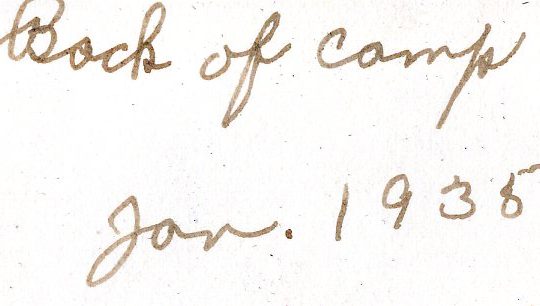 Back of camp
Jan. 1935